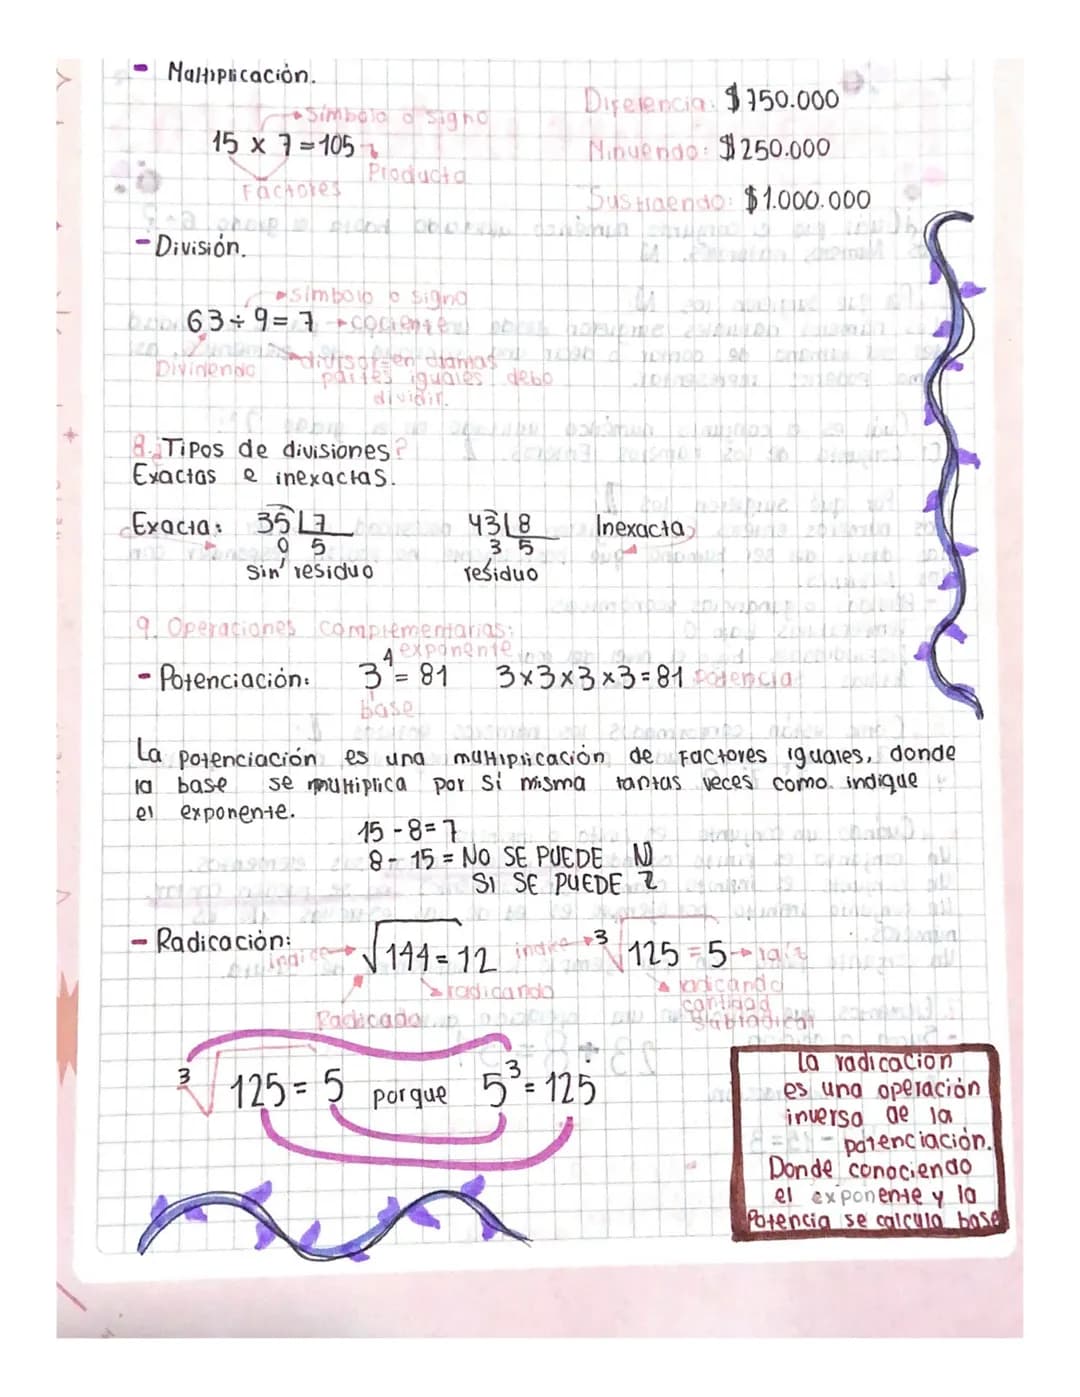 - Multiplicación.
Símbolo o signo
15 x 7 = 105
Producto
Factores
Diferencia: $750.000
Minuendo: $250.000
Sustraendo: $1.000.000
- División.
símbolo o signo
63 ÷ 9 = 7 → cociente
Dividendo
divisor en cuantas
partes iguales debo
dividir.
8. ¿Tipos de divisiones?
Exactas e inexactas.
Exacta: 35 7
0 5
sin residuo
43 8 Inexacta
3 5
residuo
9. Operaciones complementarias:
exponente
- Potenciación: 3⁴ = 81 3x3x3x3=81 potencia
base
La potenciación es una multiplicación de factores iguales, donde
la base se multiplica por sí misma tantas veces como indique
el exponente.
15 - 8 = 7
8 - 15 = NO SE PUEDE ℕ
SI SE PUEDE ℤ
- Radicación:
índice → √144 = 12
radicando
Radicado
índice → ³√125 = 5 → raíz
radicando
cantidad
subradical
³√125 = 5 porque 5³ = 125
La radicacion
es una operación
inversa de la
potenciación.
Donde conociendo
el exponente y la
Potencia se calcula base